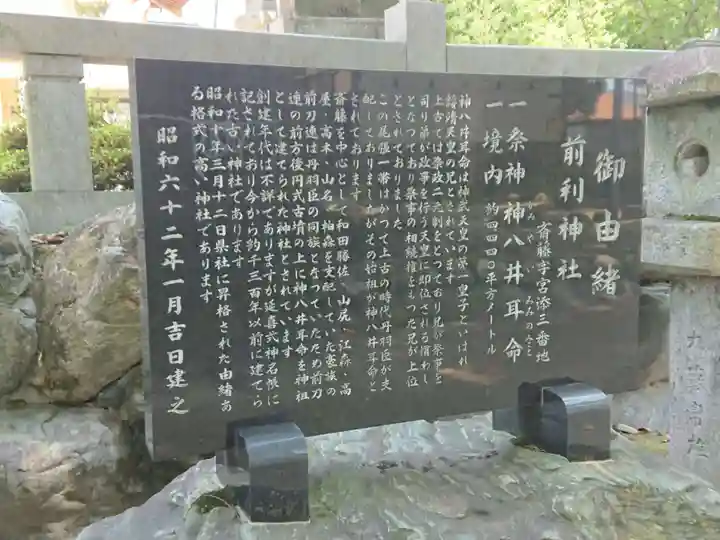 御由緒
前利神社
斎藤字宮添三番地
一祭神 神八井耳命
かみやいみみのみこと
一境内 約四四四〇平方メートル
神八井耳命は神武天皇の第一皇子といはれ
綏靖天皇の兄とされています
上古では祭政二元制をとっており兄が祭事を
司り弟が政事を行う天皇に即位される慣わし
となっており祭事の相続権をもつた兄が上位
とされておりました
この尾張一帯はかつて上古の時代丹羽臣が支
配しておりましたがその始祖が神八井耳命と
されております
斎藤を中心として和田勝佐、山尻、江森、高
屋、高木、山名、柏森を支配していた豪族の
前刀連は丹羽臣の同族となっていたため前刀
連の前方後円式古墳の上に神八井耳命を神祖
として建てられた神社とされています
創建年代は不詳でありますが延喜式神名帳に
記されており今から約千三百年以前に建てら
れた古い神社であります
昭和十年三月十二日県社に昇格された由緒あ
る格式の高い神社であります
昭和六十二年一月吉日建之